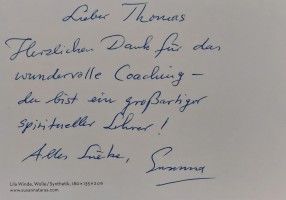 Lieber Thomas
Herzlichen Dank für das
wundervolle Coaching –
du bist ein großartiger
spiritueller Lehrer!
Alles Liebe,   Susanna
Lila Winde, Wolle/Synthetik, 180 x 135 x 2 cm
www.susannataras.com